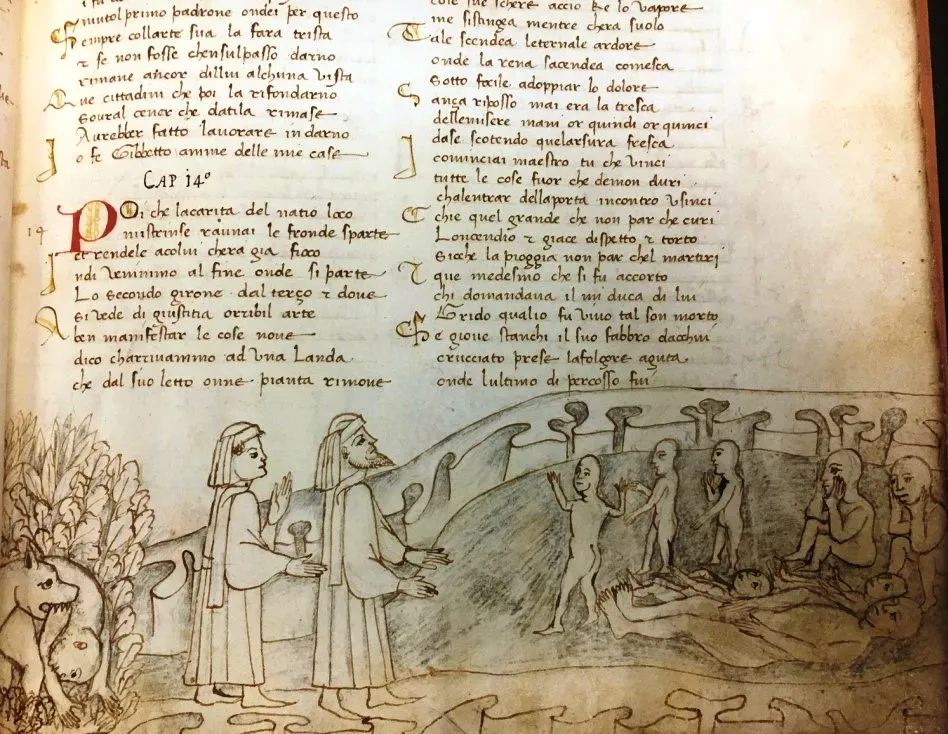 mutol primo padrone ondei per questo
Sempre collarte sua la fara trista
z se non fosse chensulpasso darno
rimane ancor dillui alchuna vista
Que cittadini che poi la rifondarno
sovral cener che datila rimase
Aurebber fatto lauorare indarno
Io fe Gibbetto amme delle mie case
CAP 14º
14
POi che lacarita del natio loco
mistrinse raunai le fronde sparte
et rendele acolui chera gia fioco
Indi venimmo al fine onde si parte
Lo secondo girone dal terço z dove
si vede di giustitia orribil arte
A ben manifestar le cose nove
dico charrivammo ad vna Landa
che dal suo letto onne pianta rimove
cole sue schere accio ke lo vapore
me sistingea mentre chera suolo
Tale scendea leternale ardore
onde la rena sacendea comesca
Sotto focile adoppiar lo dolore
Sança riposso mai era la tresca
dellemisere mani or quindi or quinci
dase scotendo quelarsura fresca
I cominciai maestro tu che vinci
tutte le cose fuor che demon duri
chalentrar dellaporta incontro vsinci
Chie quel grande che non par che curi
Loncendio z giace dispetto z torto
sicche la pioggia non par chel marturi
E que medesmo che si fu accorto
chi domandaua il mi duca di lui
Grido qualio fu viuo tal son morto
Se gioue stanchi il suo fabbro dacchui
crucciato prese lafolgore aguta
onde lultimo di percosso fui